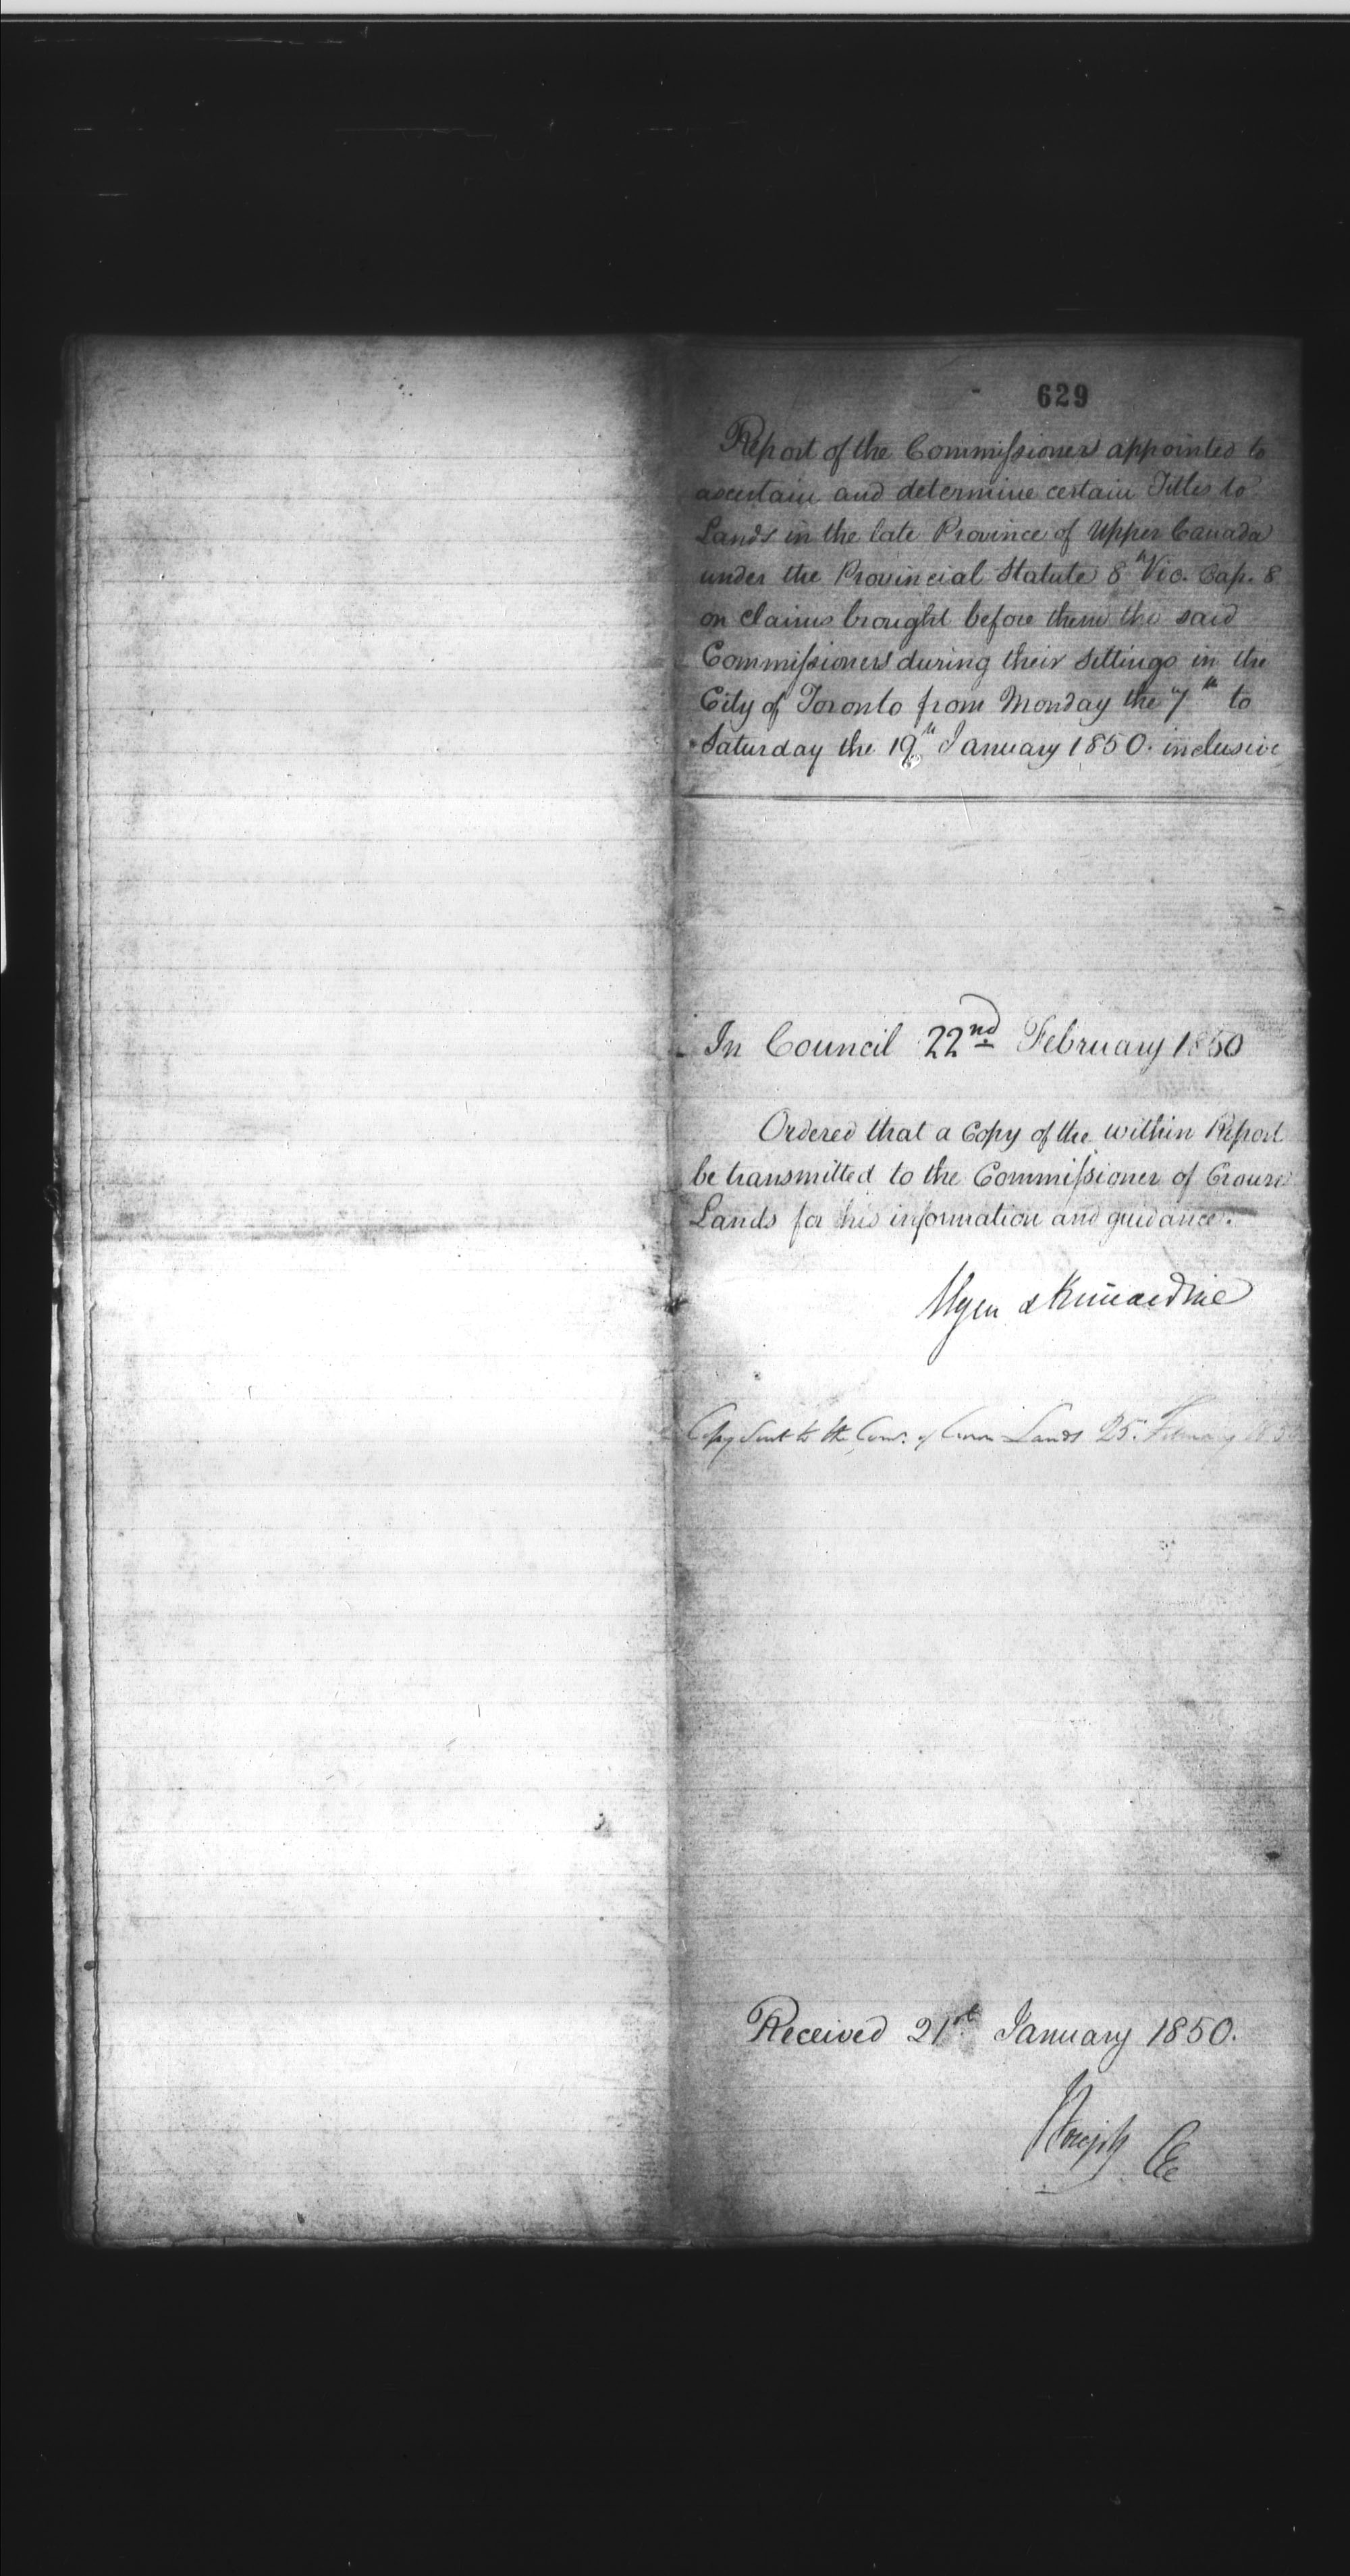 629
Report of the Commissioners appointed to
ascertain and determine certain Titles to
Lands in the late Province of Upper Canada
under the Provincial Statute 8th Vic. Cap. 8
on claims brought before them the said
Commissioners during their Sittings in the
City of Toronto from Monday the 7th to
Saturday the 19th January 1850. inclusive
In Council 22nd February 1850
Ordered that a Copy of the within Report
be transmitted to the Commissioner of Crown
Lands for his information and guidance.
Elgin & Kincardine
Copy sent to the Comr. of Crown Lands 25. February 1850
Received 21st January 1850.
Joseph